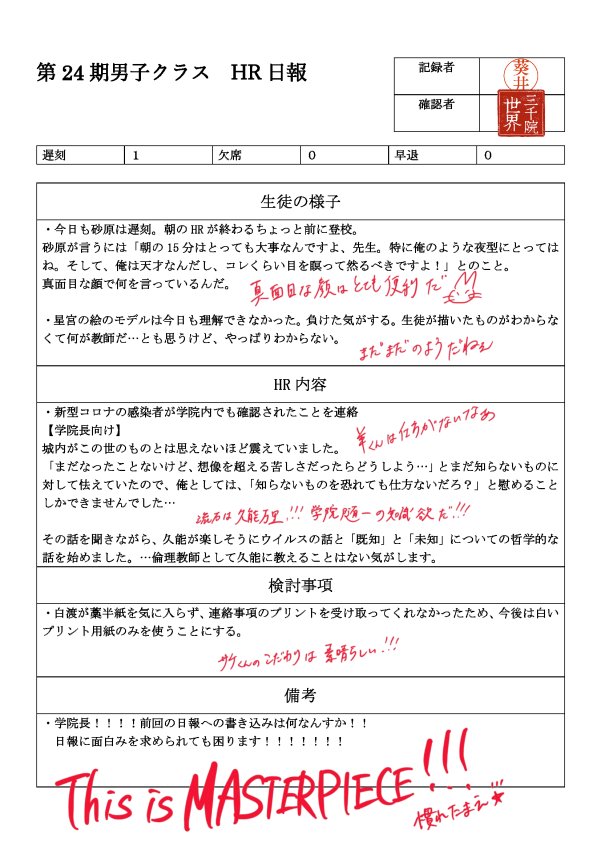 第24期男子クラス HR日報
記録者
葵井
確認者
三千院
世界
遅刻 1 欠席 0 早退 0
生徒の様子
・今日も砂原は遅刻。朝のHRが終わるちょっと前に登校。
砂原が言うには「朝の15分はとっても大事なんですよ、先生。特に俺のような夜型にとっては
ね。そして、俺は天才なんだし、コレくらい目を瞑って然るべきですよ！」とのこと。
真面目な顔で何を言っているんだ。
真面目な顔はとても便利だ
・星宮の絵のモデルは今日も理解できなかった。負けた気がする。生徒が描いたものがわからな
くて何が教師だ…とも思うけど、やっぱりわからない。
まだまだのようだねぇ
HR内容
・新型コロナの感染者が学院内でも確認されたことを連絡
【学院長向け】
羊くんは仕方がないなあ
城内がこの世のものとは思えないほど震えていました。
「まだなったことないけど、想像を超える苦しさだったらどうしよう…」とまだ知らないものに
対して怯えていたので、俺としては、「知らないものを恐れても仕方ないだろ？」と慰めること
しかできませんでした…
流石は久能万里!!! 学院随一の知識欲だ!!!
その話を聞きながら、久能が楽しそうにウイルスの話と「既知」と「未知」についての哲学的な
話を始めました。…倫理教師として久能に教えることはない気がします。
検討事項
・白渡が藁半紙を気に入らず、連絡事項のプリントを受け取ってくれなかったため、今後は白い
プリント用紙のみを使うことにする。
サケくんのこだわりは素晴らしい!!!
備考
・学院長！！！！前回の日報への書き込みは何なんすか！！
日報に面白みを求められても困ります！！！！！！！
This is MASTERPIECE!!!
慣れたまえ☆